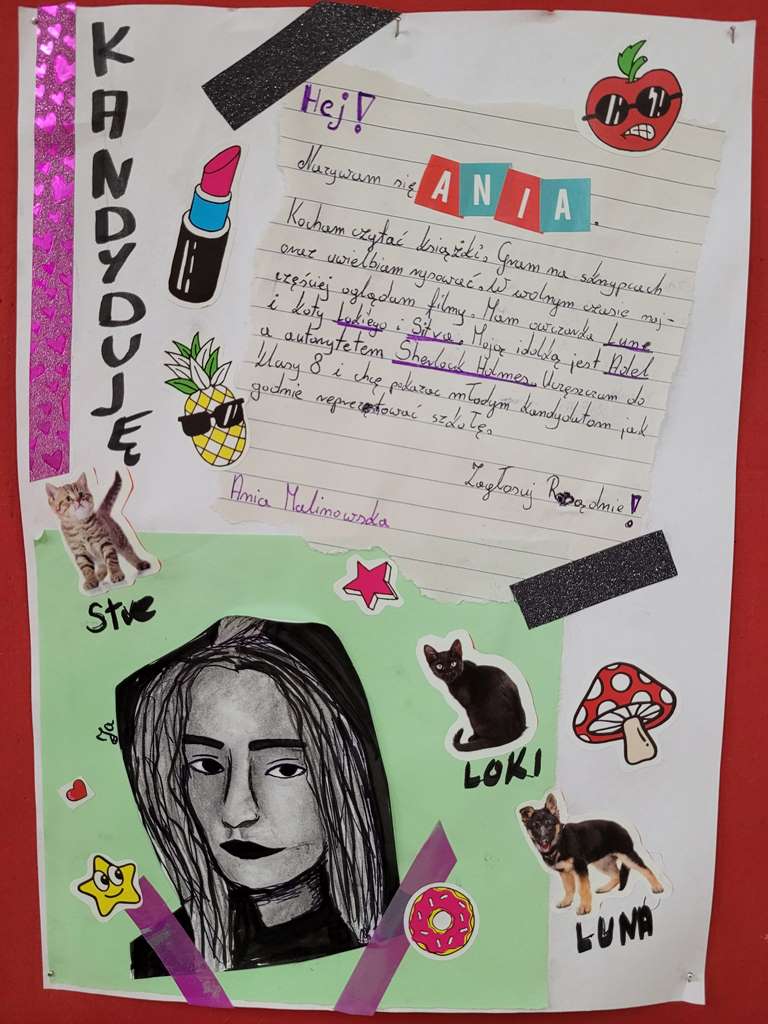 KANDYDUJĘ
Hej!
Nazywam się ANIA.
Kocham czytać książki. Gram na skrzypcach
oraz uwielbiam rysować. W wolnym czasie naj-
częściej oglądam filmy. Mam owczarka Lunę
i koty Lokiego i Stiva. Moją idolką jest Adel
a autorytetem Sherlock Holmes. Uczęszczam do
klasy 8 i chcę pokazać młodym kandydatom jak
godnie reprezentować szkołę.
Zagłosuj Rozsądnie!
Ania Malinowska
Stve
Ja
LOKI
LUNA